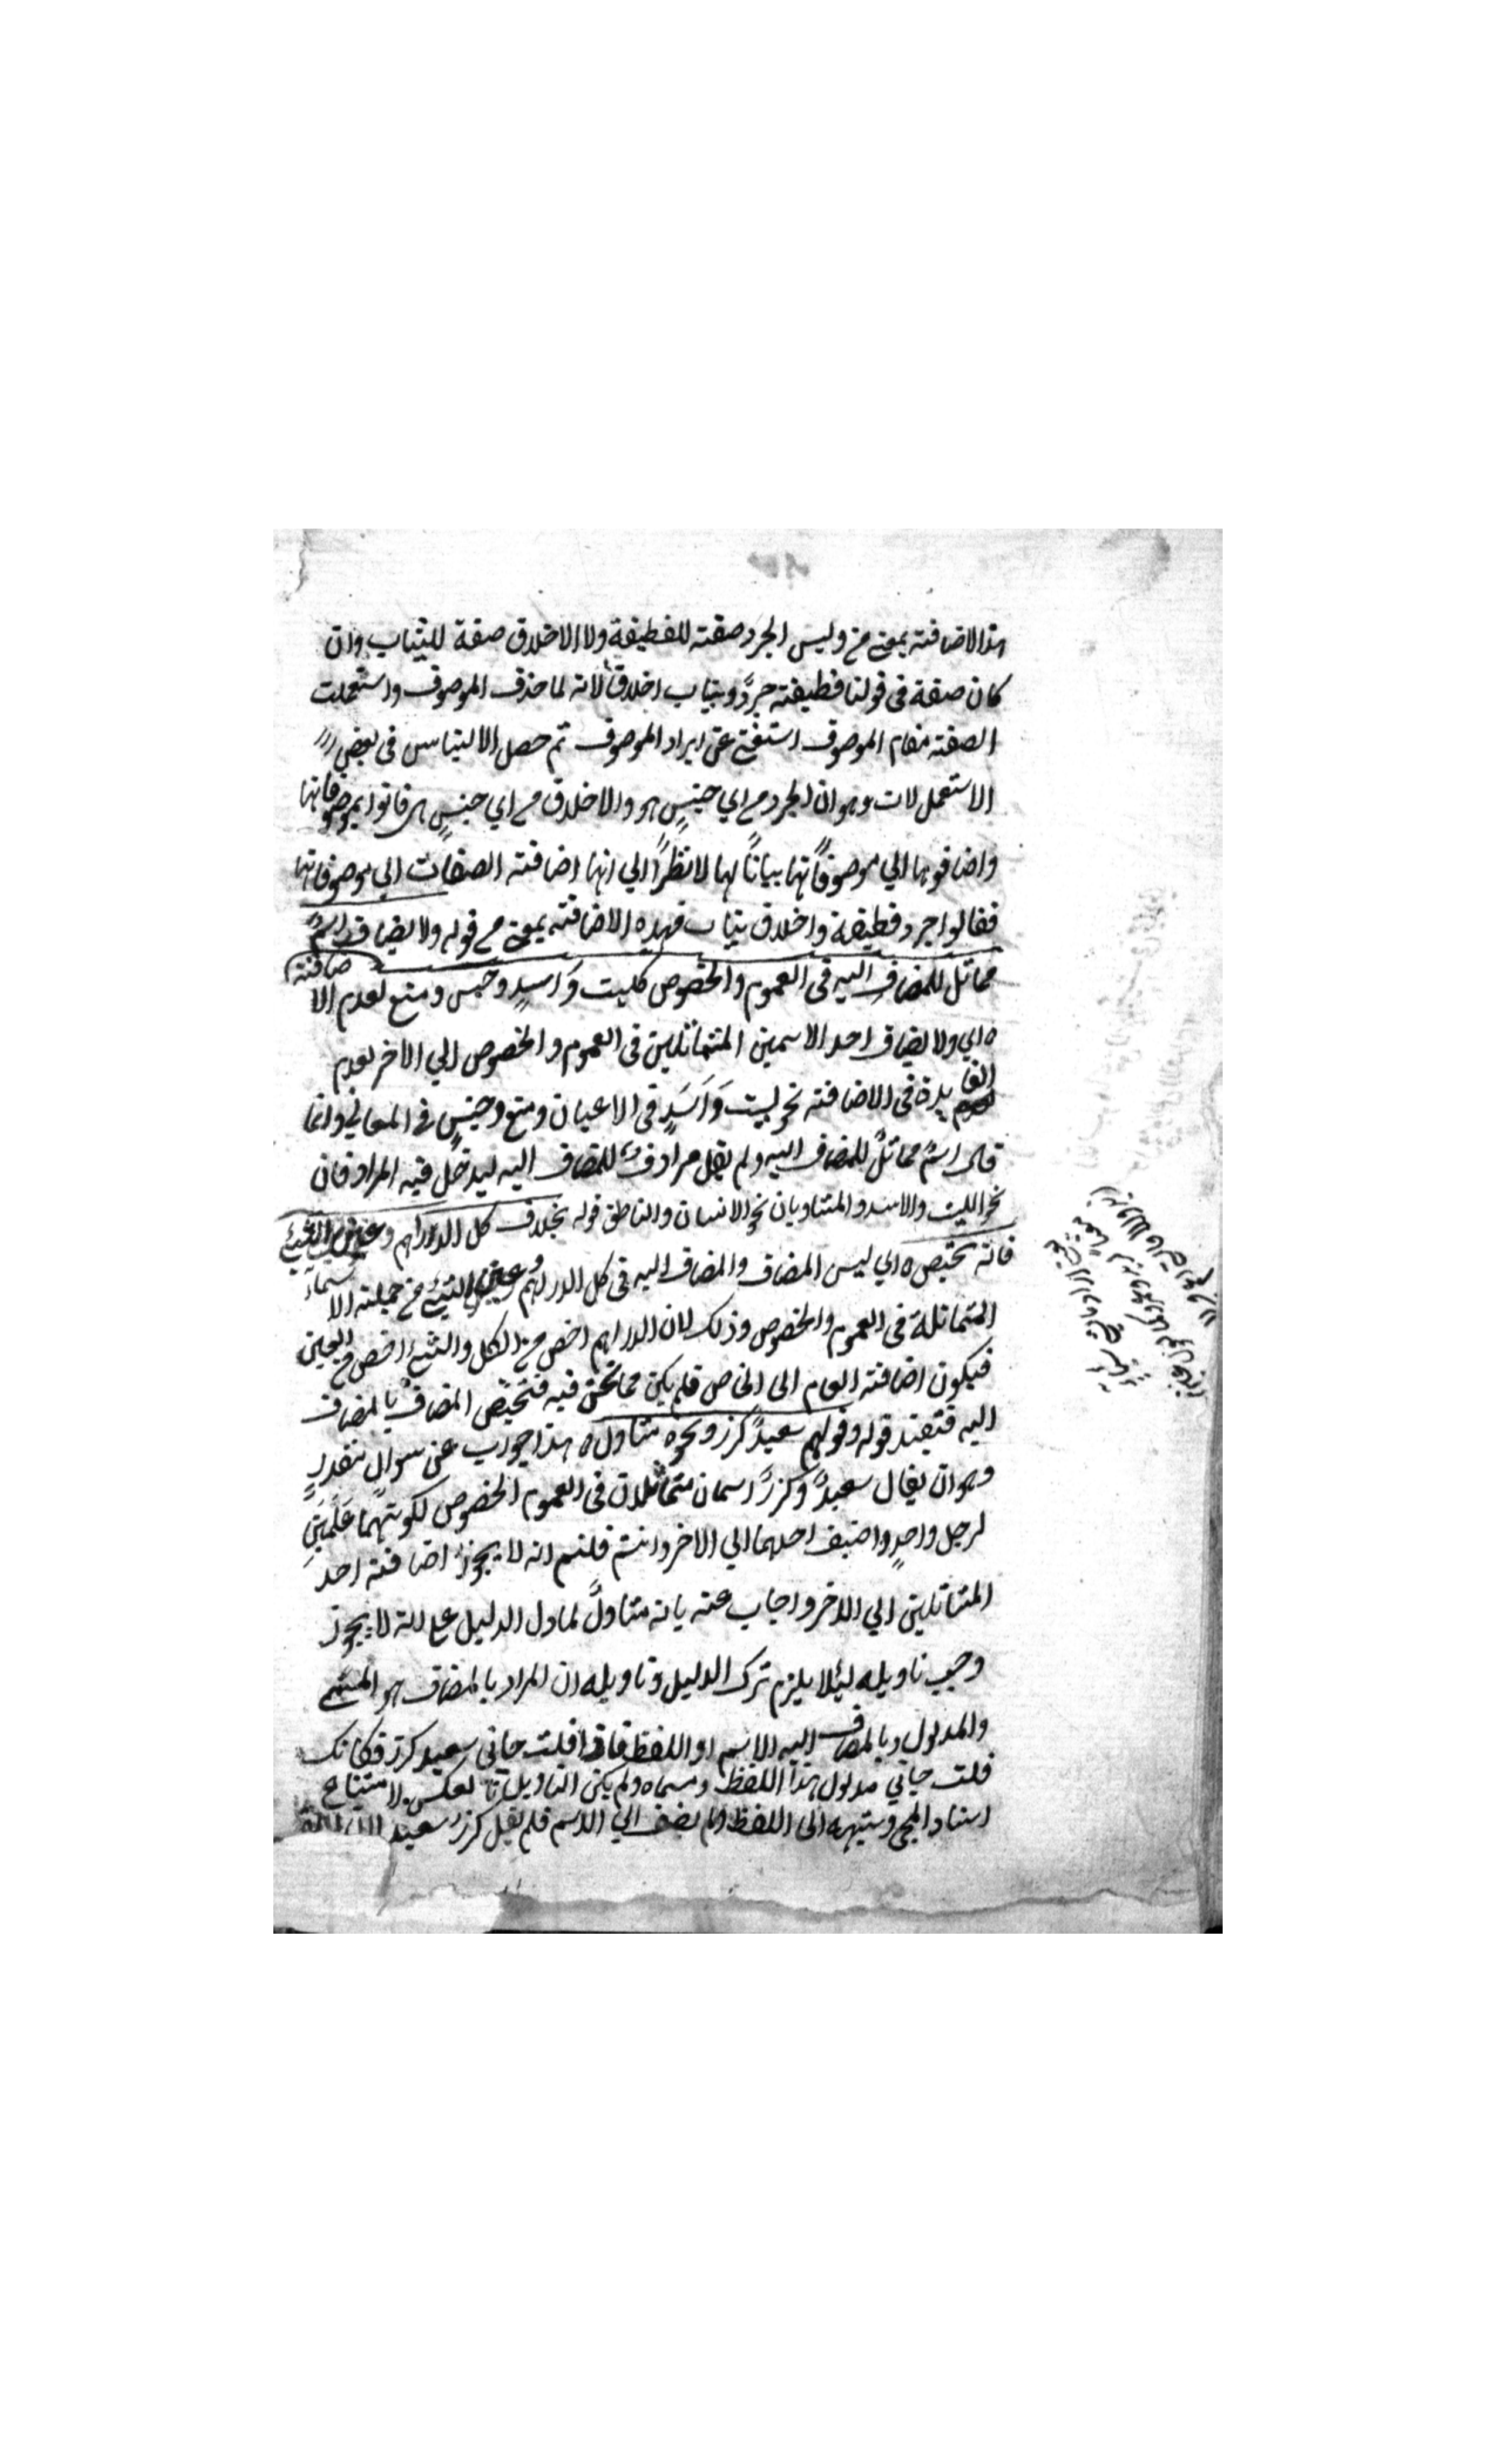 هذا الاضافته بمعنى من وليس الجرد صفته للقطيفة ولا الاخلاق صفة للثياب وان
كان صفة فى قولنا قطيفته جردٌ وثياب اخلاقٌ لانه لما حذف الموصوف واستعملت
الصفته مقام الموصوف استغنى عن ايراد الموصوف ثم حصل الالتباس فى بعض
الاستعملات وهو ان الجرد من اي جنسٍ هو والاخلاق من اي جنسٍ هى فاتوا بموصوفاتها
واضافوها الي موصوفاتها بيانًا لها لا نظرًا الي انها اضافته الصفات الي موصوفاتها
فقالوا جرد قطيفة واخلاق ثياب فهده الاضافته بمعنى من قوله ولا يضاف اسمٌ
مماثل للمضاف اليه فى العموم والخصوص كليت وَاسدٍ وحبس ومنع لعدم الاضافته
ه اي ولا يضاف احد الاسمين المتماثلين فى العموم والخصوص الي الاخر لعدم
الفايدة فى الاضافته نحو ليت وَاَسَدٍ فى الاعيان ومنع وحبسٍ فى المعاني وانما
قال اسمٌ مماثلٌ للمضاف اليه ولم يقل مرادفٌ للمضاف اليه ليدخل فيه المرادفان
نحو الليت والاسد والمتساويان نحو الانسان والناطق قوله بخلاف كل الدراهم وعين الشيئ
فانه يختص ه اي ليس المضاف والمضاف اليه فى كل الدراهم وعين الشيئ من جملته الاسماء
المتماثلة فى العموم والخصوص وذلك لان الدراهم اخص من الكل والشيئ اخص من العين
فيكون اضافته العام الى الخاص فلم يكن مما نحن فيه فتختص المضاف بالمضاف
اليه فتفيد قوله وقولهم سعيدُ كرز ونحوه متاول ه هذا جواب عن سوالٍ مقدرٍ
وهو ان يقال سعيدٌ وكرزٌ اسمان متماثلان فى العموم الخصوص لكونهما عَلَمَيْنِ
لرجل واحدٍ واضيف احدهما الي الاخر وانتم قلتم انه لا يجوز اضافته احد
المتماثلين الي الاخر واجاب عنه بانه متاولٌ لما دل الدليل على انه لا يجوز
وجب تاويله لئلا يلزم ترك الدليل وتاويله ان المراد بالمضاف هو المسمى
والمدلول وبالمضاف اليه الاسم او اللفظ فاذا قلت جاني سعيد كرز فكانك
قلت جاني مدلول هذا اللفظ ومسماه ولم يكن التاويل بالعكس لامتناع
اسناد المجى وشبهه الى اللفظ ولم يضف الي الاسم فلم يقل كرز سعيد